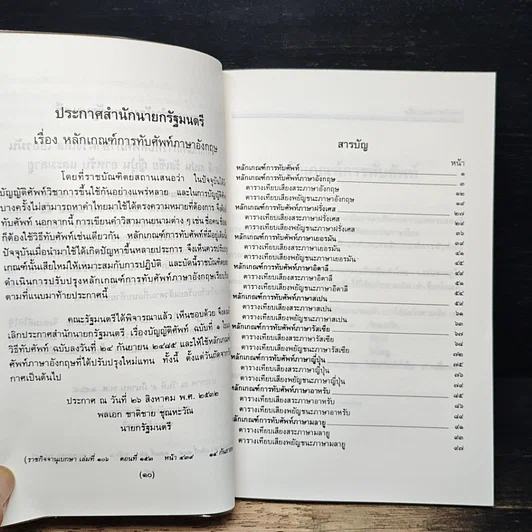 ประกาศสำนักนายกรัฐมนตรี
เรื่อง หลักเกณฑ์การทับศัพท์ภาษาอังกฤษ
โดยที่ราชบัณฑิตยสถานเสนอว่า ในปัจจุบันได้
บัญญัติศัพท์วิชาการขึ้นใช้กันอย่างแพร่หลาย และในการบัญญัติ
บางครั้งไม่สามารถหาคำไทยมาใช้ได้ตรงความหมายที่ต้องการ
ทับศัพท์ นอกจากนี้ การเขียนคำวิสามานยนามต่าง ๆ เช่น ชื่อคน
ก็ต้องใช้วิธีทับศัพท์เช่นเดียวกัน หลักเกณฑ์การทับศัพท์ที่มีอยู่เดิม
ปัจจุบันเมื่อนำมาใช้ได้เกิดปัญหาขึ้นหลายประการ จึงเห็นควร
เกณฑ์นั้นเสียใหม่ให้เหมาะสมกับการปฏิบัติ และบัดนี้ราชบัณฑิต
ดำเนินการปรับปรุงหลักเกณฑ์การทับศัพท์ภาษาอังกฤษ
ตามที่แนบมาท้ายประกาศนี้
คณะรัฐมนตรีได้พิจารณาแล้ว เห็นชอบด้วย
เลิกประกาศสำนักนายกรัฐมนตรี เรื่องบัญญัติศัพท์ ฉบับที่
วิธีทับศัพท์ ฉบับลงวันที่ ๒๔ กันยายน ๒๔๘๕ และให้ใช้หลักเกณฑ์
ศัพท์ภาษาอังกฤษที่ได้ปรับปรุงใหม่แทน ทั้งนี้ ตั้งแต่วันถัดจาก
กาศเป็นต้นไป
ประกาศ ณ วันที่ ๒๖ สิงหาคม พ.ศ. ๒๕๓๒
พลเอก ชาติชาย ชุณหะวัณ
นายกรัฐมนตรี
(ราชกิจจานุเบกษา เล่มที่ ๑๐๖ ตอนที่ ๑๕๒ หน้า ๔๓๙
(๑๐)
สารบัญ
หน้า
หลักเกณฑ์การทับศัพท์ ๑
หลักเกณฑ์การทับศัพท์ภาษาอังกฤษ ๓
ตารางเทียบเสียงสระภาษาอังกฤษ
ตารางเทียบเสียงพยัญชนะภาษาอังกฤษ
หลักเกณฑ์การทับศัพท์ภาษาฝรั่งเศส ๒๗
ตารางเทียบเสียงสระภาษาฝรั่งเศส
ตารางเทียบเสียงพยัญชนะภาษาฝรั่งเศส
หลักเกณฑ์การทับศัพท์ภาษาเยอรมัน
ตารางเทียบเสียงสระภาษาเยอรมัน
ตารางเทียบเสียงพยัญชนะภาษาเยอรมัน
หลักเกณฑ์การทับศัพท์ภาษาอิตาลี
ตารางเทียบเสียงสระภาษาอิตาลี
ตารางเทียบเสียงพยัญชนะภาษาอิตาลี
หลักเกณฑ์การทับศัพท์ภาษาสเปน
ตารางเทียบเสียงสระภาษาสเปน
ตารางเทียบเสียงพยัญชนะภาษาสเปน
หลักเกณฑ์การทับศัพท์ภาษารัสเซีย
ตารางเทียบเสียงสระภาษารัสเซีย
ตารางเทียบเสียงพยัญชนะภาษารัสเซีย
หลักเกณฑ์การทับศัพท์ภาษาญี่ปุ่น
ตารางเทียบเสียงสระภาษาญี่ปุ่น
ตารางเทียบเสียงพยัญชนะภาษาญี่ปุ่น
หลักเกณฑ์การทับศัพท์ภาษาอาหรับ
ตารางเทียบเสียงสระภาษาอาหรับ
ตารางเทียบเสียงพยัญชนะภาษาอาหรับ
หลักเกณฑ์การทับศัพท์ภาษามลายู ๙๑
ตารางเทียบเสียงสระภาษามลายู ๙๓
ตารางเทียบเสียงพยัญชนะภาษามลายู ๙๗